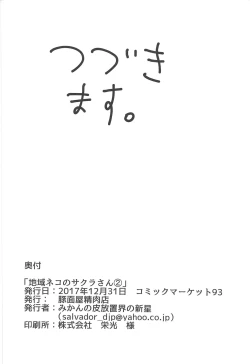 つづき
ます。
奥付
「地域ネコのサクラさん②」
発行日：2017年12月31日　コミックマーケット93
発行：　豚面屋精肉店
発行者：みかんの皮放置界の新星
（salvador_djp@yahoo.co.jp）
印刷所：株式会社　栄光　様